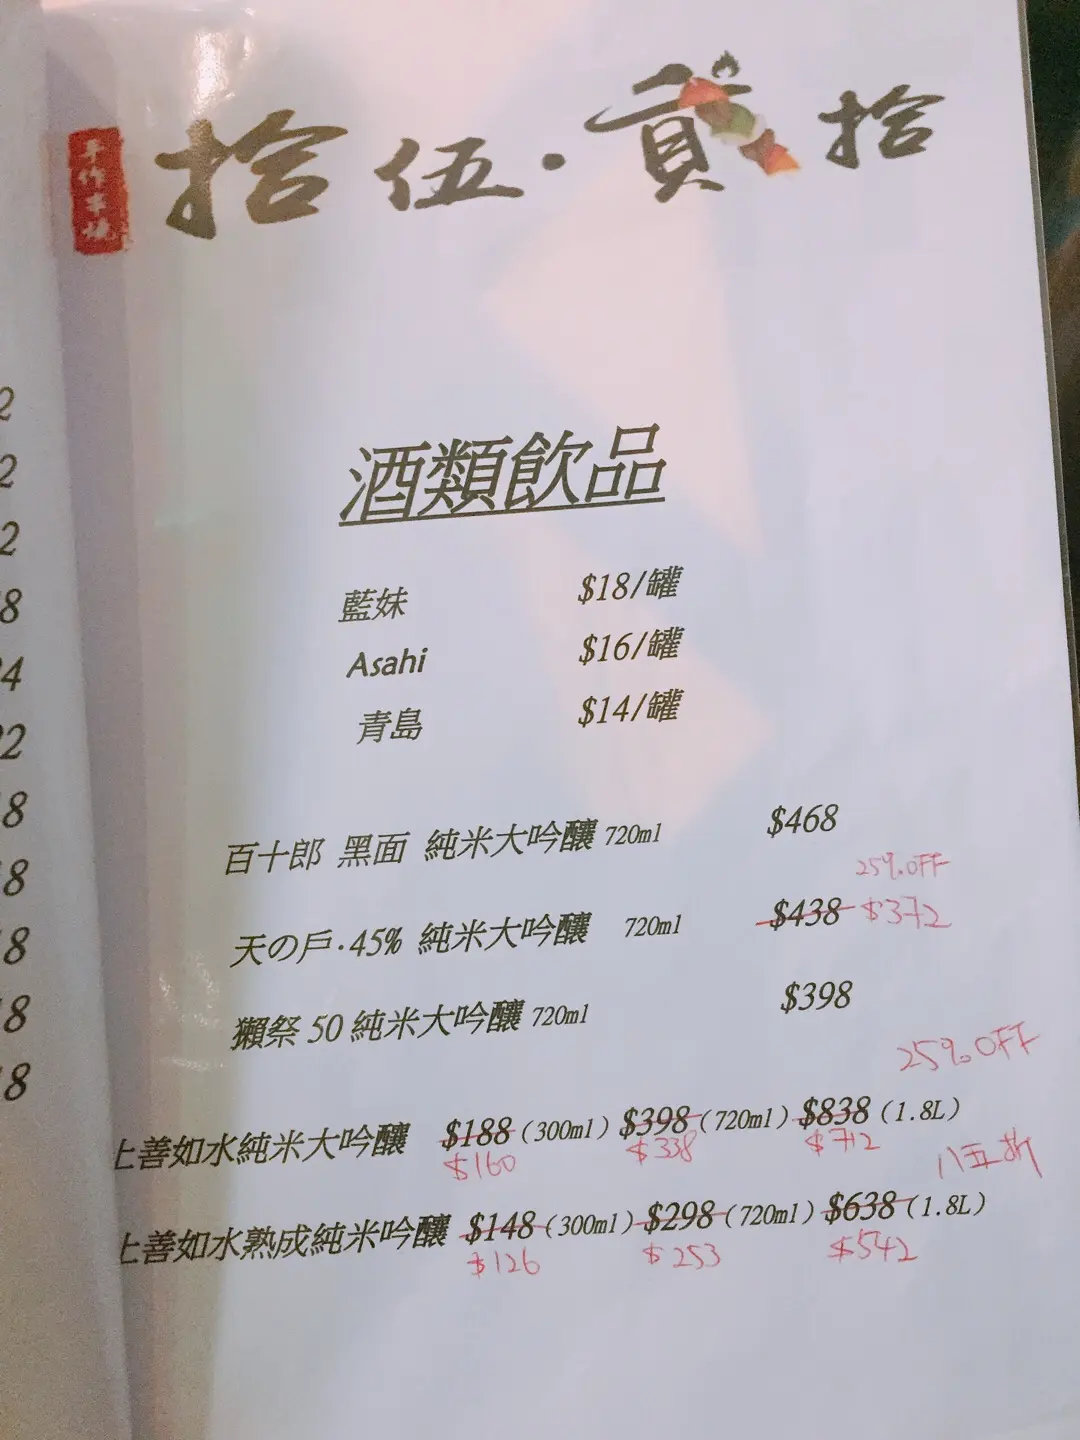 手作串燒
拾伍·貳拾
酒類飲品
藍妹 $18/罐
Asahi $16/罐
青島 $14/罐
百十郎 黑面 純米大吟釀 720ml $468
25% OFF
天の戶·45% 純米大吟釀 720ml $438 $372
獺祭 50 純米大吟釀 720ml $398
25% OFF
上善如水純米大吟釀 $188 (300ml) $398 (720ml) $838 (1.8L)
$160 $338 $712 八五折
上善如水熟成純米吟釀 $148 (300ml) $298 (720ml) $638 (1.8L)
$126 $253 $542
2
2
2
8
4
22
8
8
8
8
8